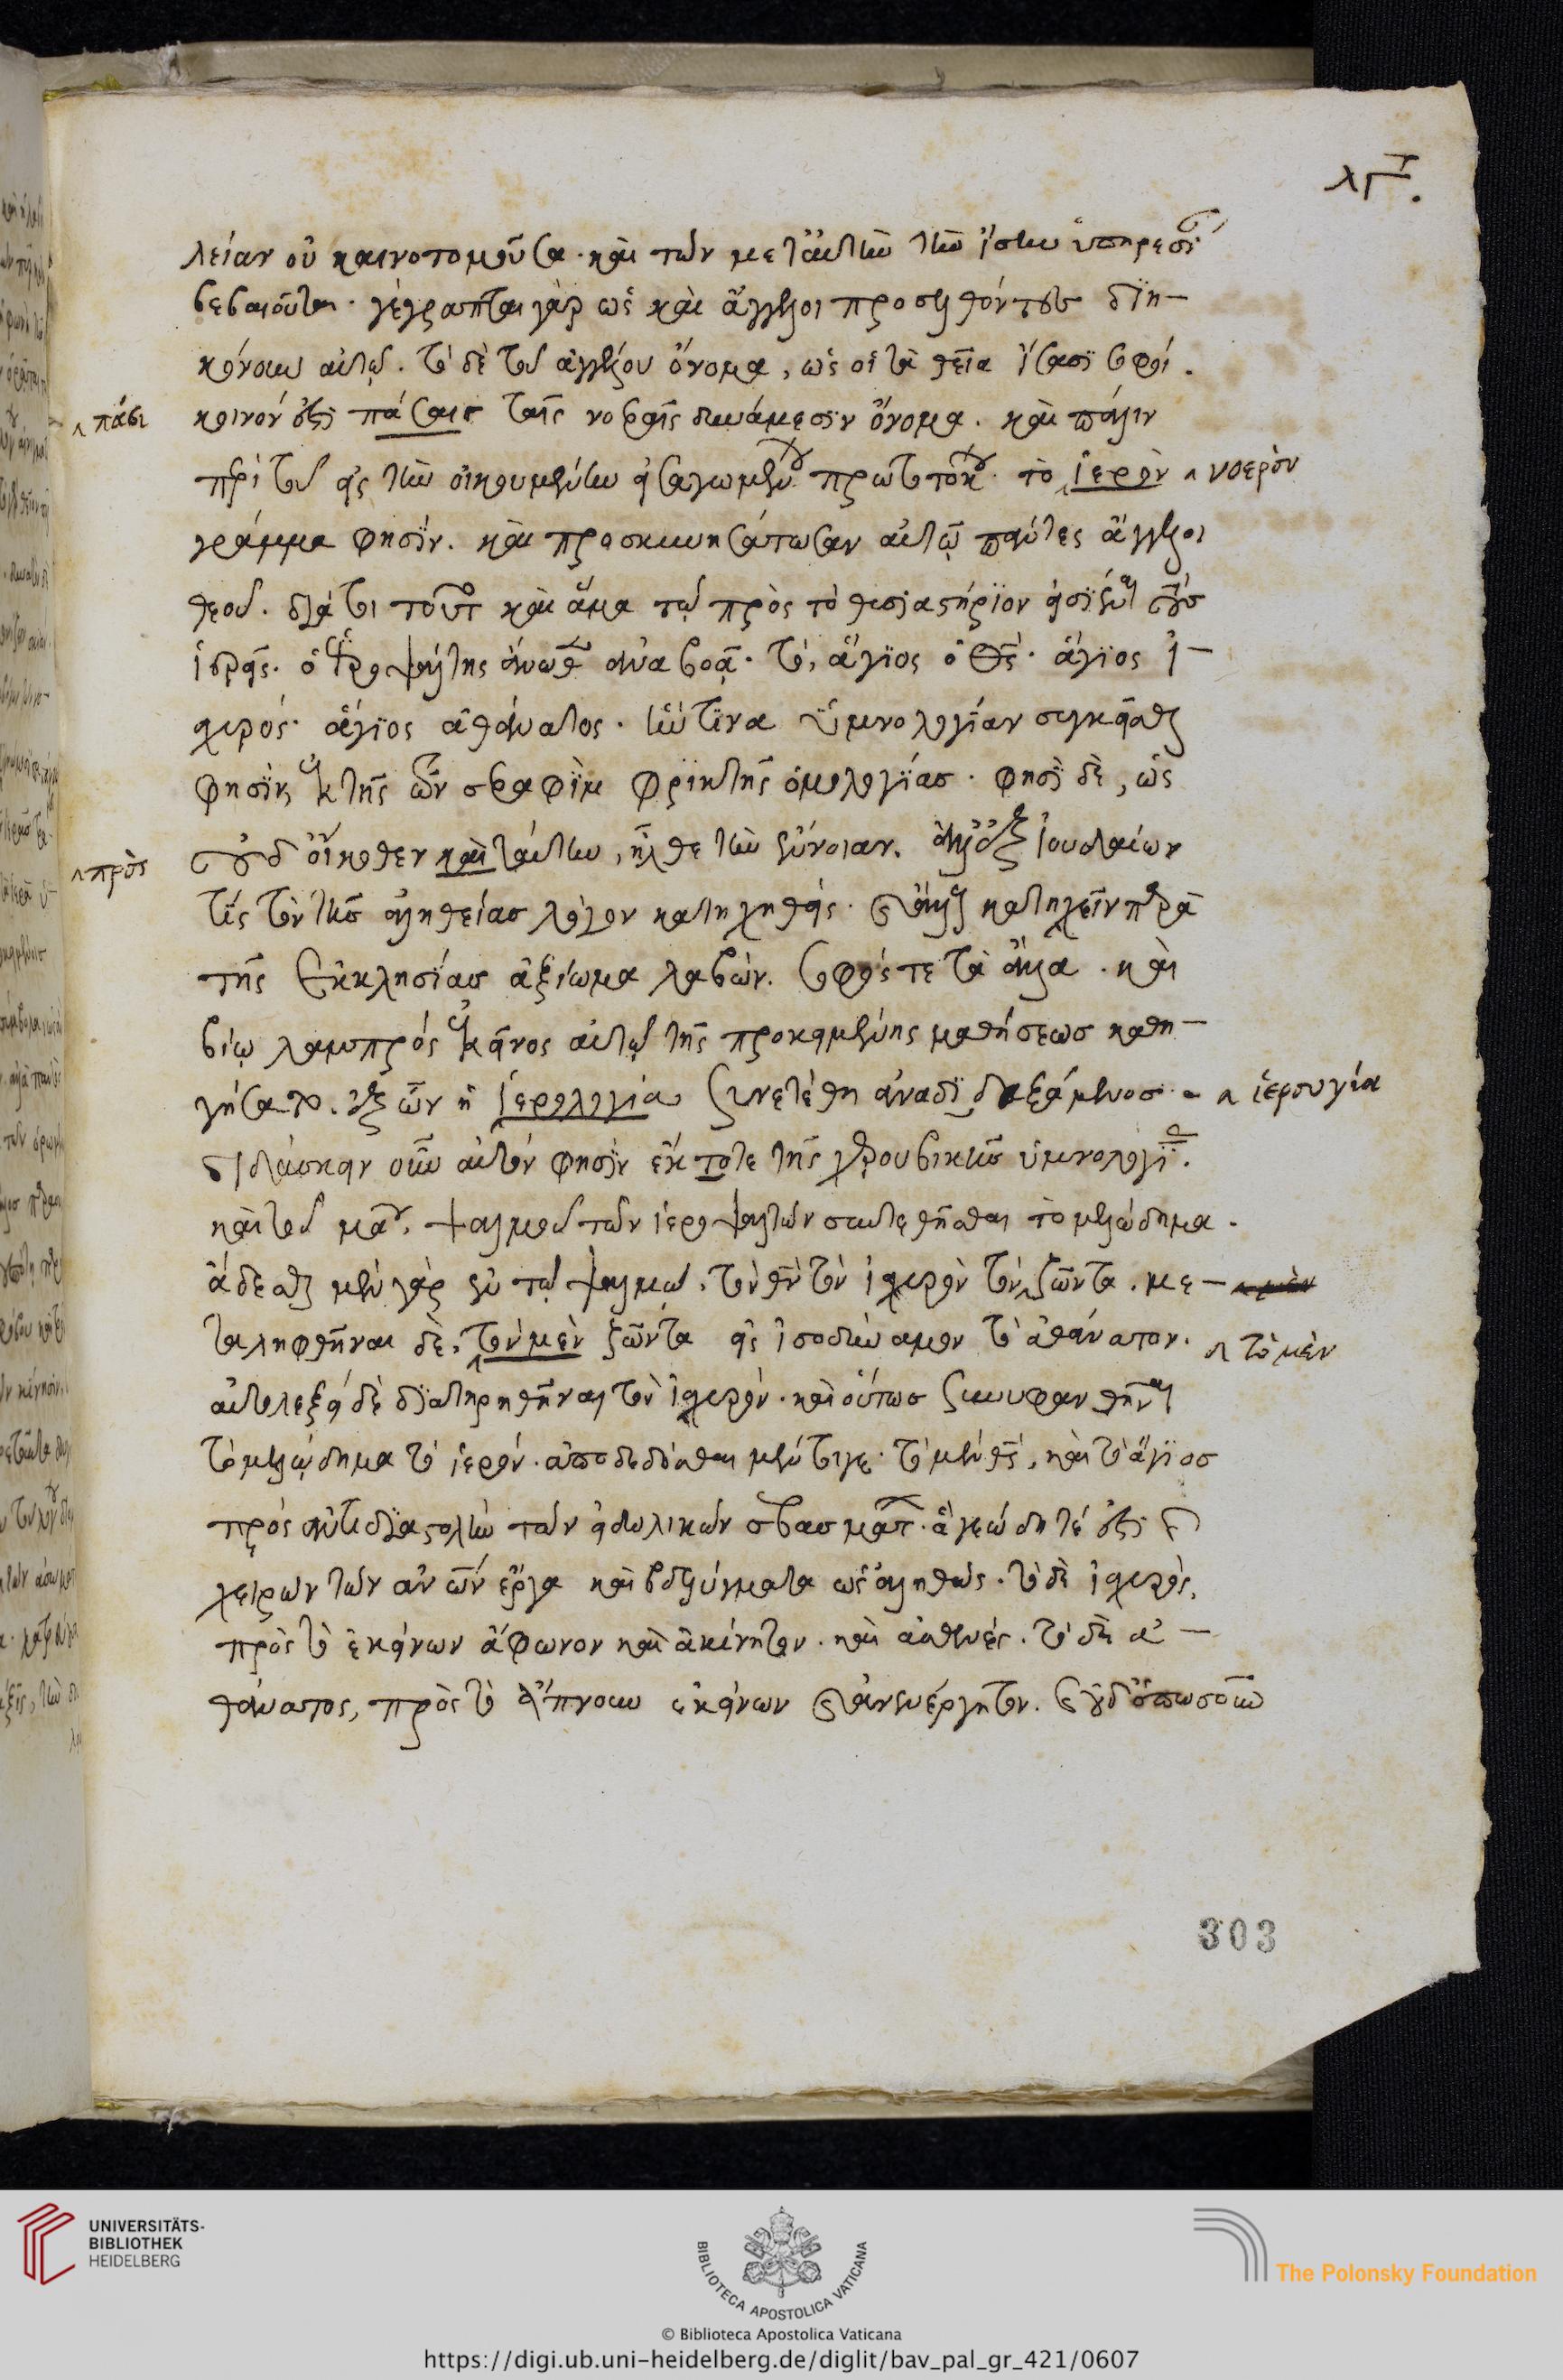 λγον.
λείαν οὐ καινοτομοῦσα. καὶ τῶν μετ' αὐτὴν τὴν ὑπηρεσί
βεβαιοῦται. γέγραπται γὰρ ὡς καὶ ἄγγελοι προσελθόντες διη-
κόνουν αὐτῷ. τὸ δὲ τοῦ ἀγγέλου ὄνομα, ὡς οἱ τὰ θεῖα ἴσασι σοφοί.
^ πάσι
κοινόν ἐστι πάσαις ταῖς νοεραῖς δυνάμεσιν ὄνομα. καὶ πάλιν
περὶ τοῦ εἰς τὴν οἰκουμένην εἰσαγωμένου πρωτοτόκου. τὸ ἱερὸν ^ νοερὸν
γράμμα φησὶν. καὶ προσκυνησάτωσαν αὐτῷ πάντες ἄγγελοι
θεοῦ. διατι τοῦτο καὶ ἅμα τῷ πρὸς τὸ θυσιαστήριον εἰσιέναι τοὺς
ἱερεῖς. ὁ ἱεροψάλτης ἄνωθεν ἀναβοᾷ. τὸ, ἅγιος ὁ θς. ἅγιος ἰ-
σχυρός. ἅγιος ἀθάνατος. ἥντινα ὑμνολογίαν συγκεῖσθαι
φησὶν, ἐκ τῆς τῶν σεραφὶμ φρικτῆς ὁμολογίας. φησὶ δὲ, ὡς
^ πρὸς
οὐδ' οἴκοθεν καὶ ταύτην, ἦλθε τὴν ἔννοιαν. ἀλλ' ὁ ἐξ Ἰουδαίων
τίς τὸν τῆς ἀληθείας λόγον κατηχηθείς. καὶ ἄλλους κατηχεῖν παρὰ
τῆς Ἐκκλησίας ἀξίωμα λαβών. σοφός τε τὰ ἄλλα. καὶ
βίῳ λαμπρός ἐκεῖνος αὐτῷ τῆς προκειμένης μαθήσεως καθη-
γήσατο. ἐξ ὧν ἡ ἱερολογία συνετέθη ἀναδιδαξάμενος. ^ ἱερουγία
διδάσκειν οὖν αὐτόν φησὶν ἔκ τοτε τῆς χερουβικῆς ὑμνολογί.
καὶ τοῦ μα, ψαλμοῦ τῶν ἱεροψαλτῶν συντεθῆσθαι τὸ μελώδημα.
ᾄδεσθαι μὲν γὰρ ἐν τῷ ψαλμῷ, τὸν θν τὸν ἰσχυρὸν τὸν ζῶντα. με- ^ μὲν
ταληφθῆναι δὲ, τὸν μὲν ζῶντα εἰς ἰσοδύναμον τὸ ἀθάνατον. ^ τὸ μὲν
αὐτολεξεὶ δὲ διατηρηθῆναι τὸν ἰσχυρόν. καὶ οὕτως συνυφανθῆναι
τὸ μελώδημα τὸ ἱερόν. ἀποδεδόσθαι μέν τοιγε. τὸ μὲν θς, καὶ τὸ ἅγιος
πρὸς ἀντιδιαστολὴν τῶν εἰδωλικῶν σεβασμάτ. ἃ γεώδη τέ ἐστι καὶ
χειρῶν τῶν ἀνῶν ἔργα καὶ βδελύγματα ὡς ἀληθῶς. τὸ δὲ ἰσχυρὸς,
πρὸς τὸ ἐκείνων ἄφωνον καὶ ἀκίνητον. καὶ ἀσθενές. τὸ δὲ ἀ-
θάνατος, πρὸς τὸ ἄπνουν ἐκείνων καὶ ἀνενέργητον. καὶ οὐδ' ὁπωσοῦν
303
UNIVERSITÄTS-
BIBLIOTHEK
HEIDELBERG
BIBLIOTECA APOSTOLICA VATICANA
The Polonsky Foundation
© Biblioteca Apostolica Vaticana
https://digi.ub.uni-heidelberg.de/diglit/bav_pal_gr_421/0607